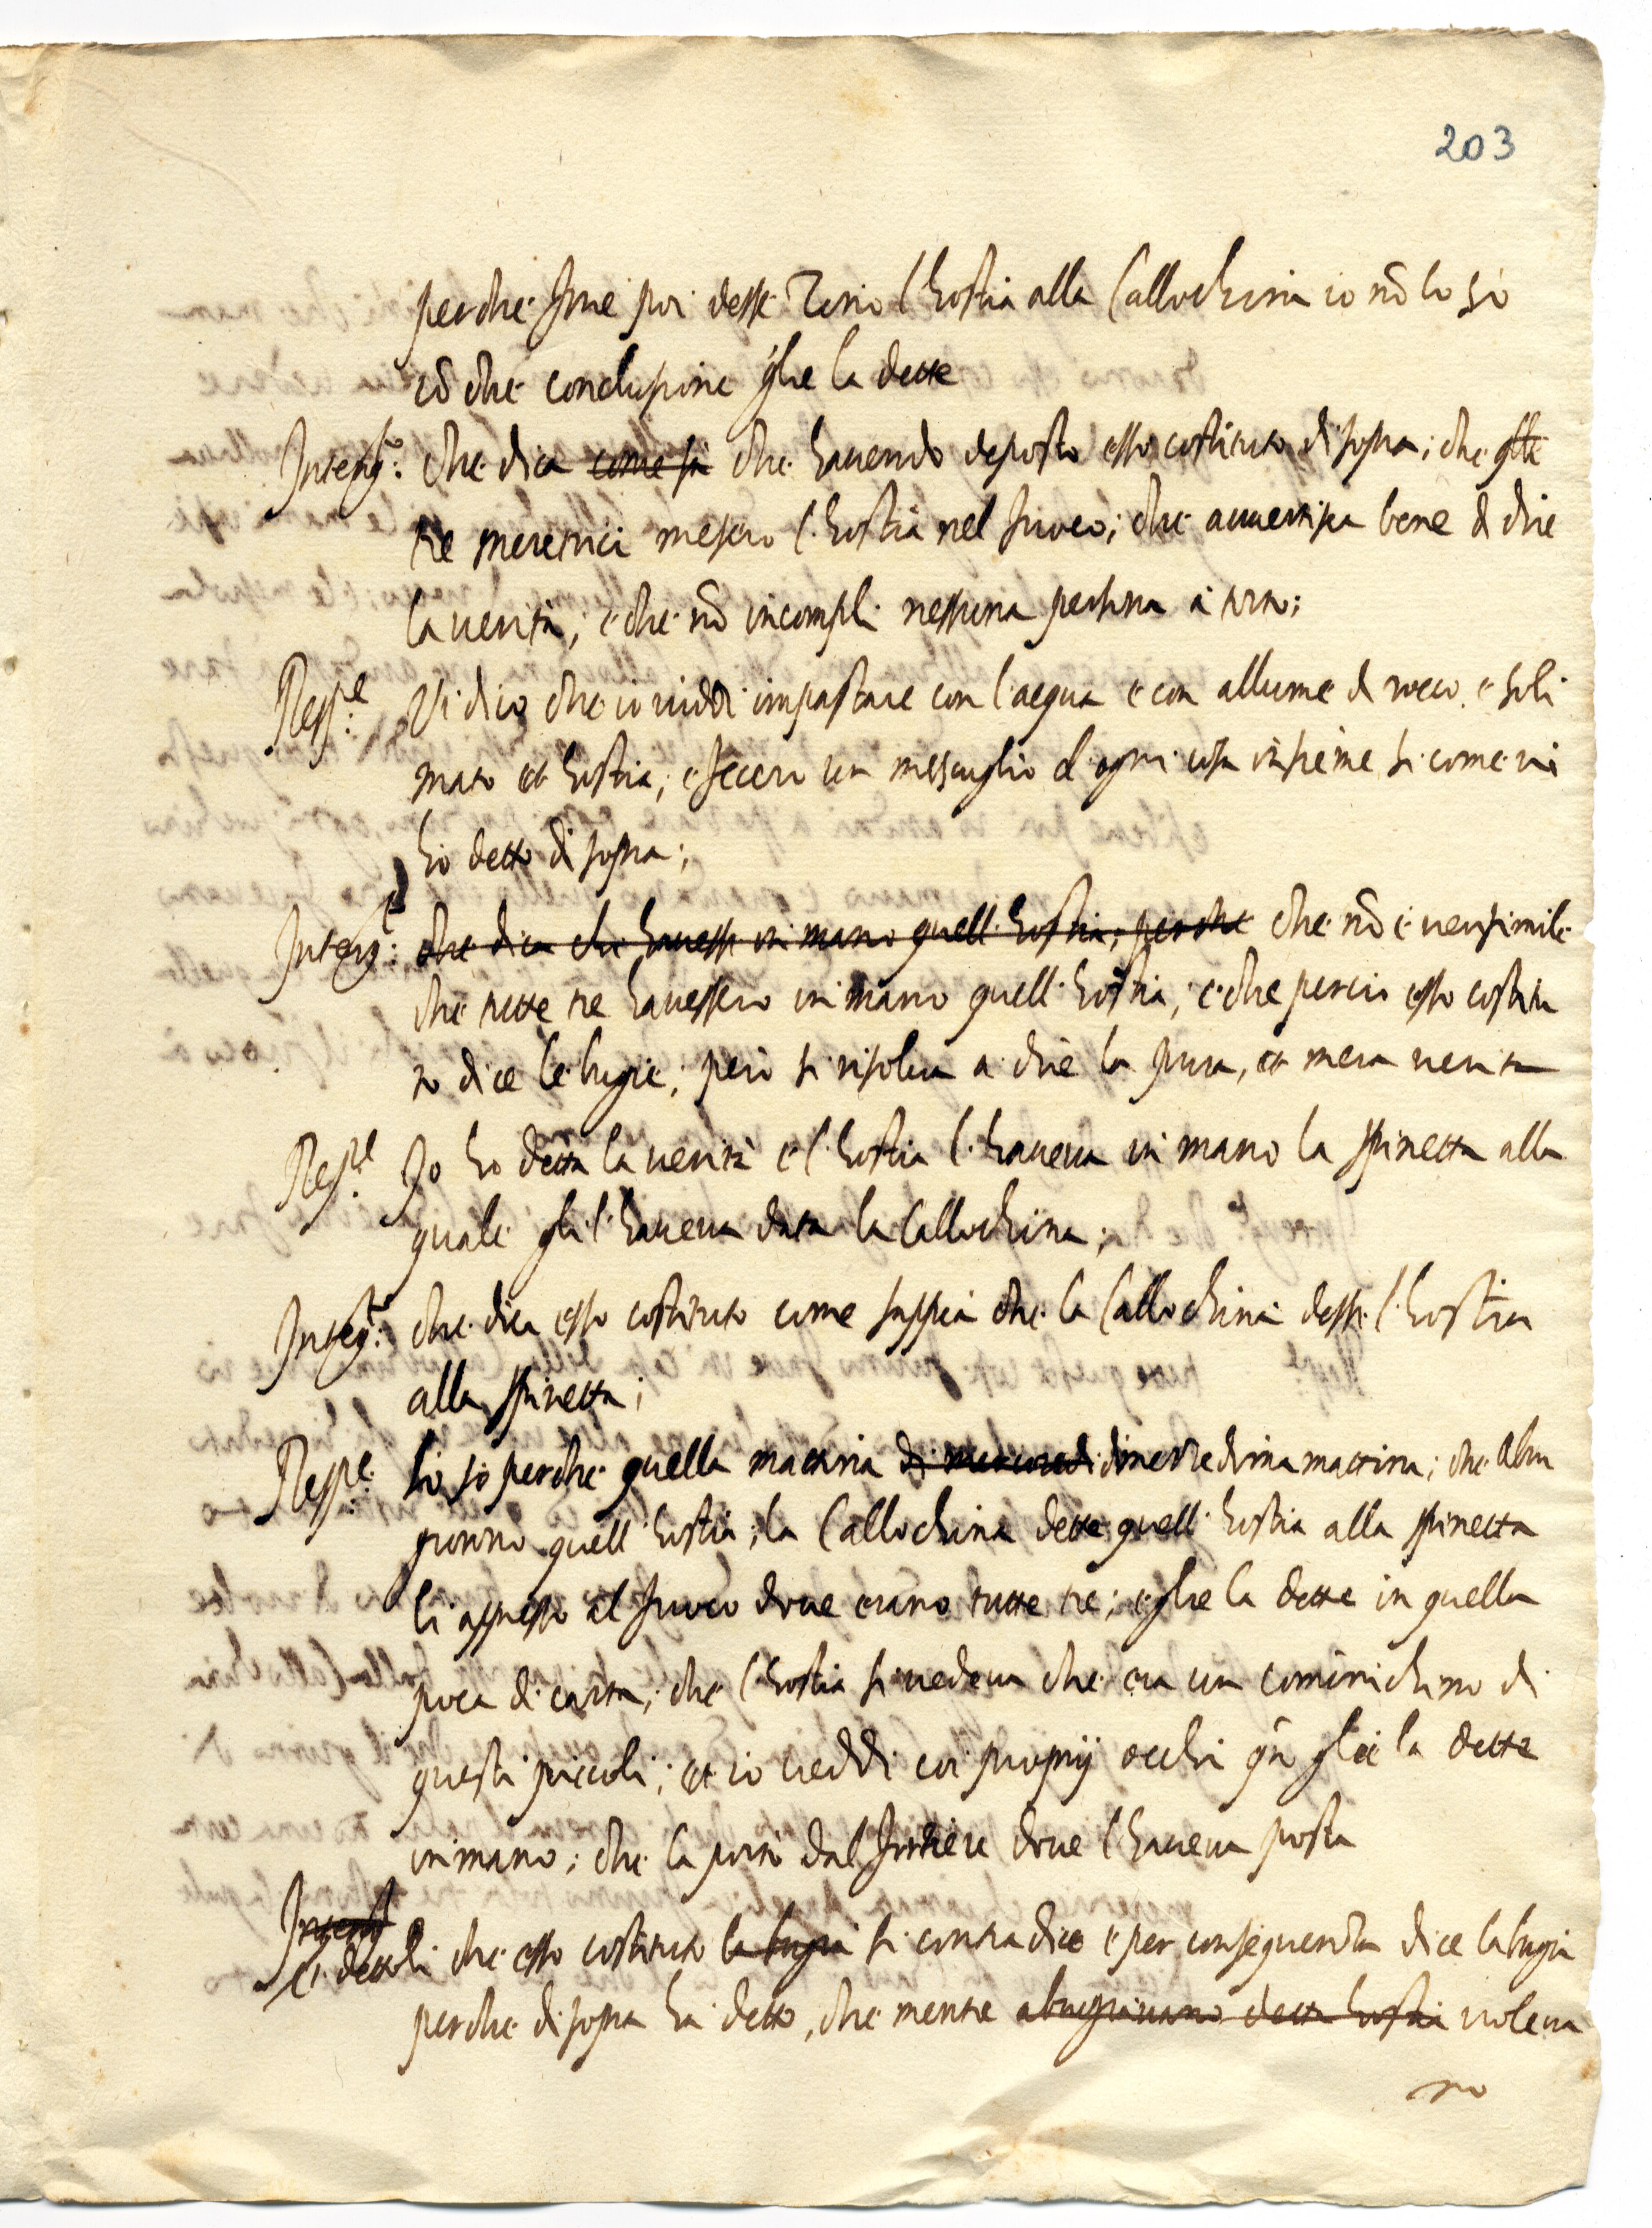 203
perche fine poi desse Tonio l'hostia alla Callochina io nõ lo sò
cõ che conclusione glie la dette
Interg.to: che dica come sa che havendo deposto esso costituto di sopra; che
tre meretrici mesero l'hostia nel fuoco; che avvertisca bene di dire
la verità; e che nõ incolpli nessuna persona à torto;
Resp.e Vi dico che io viddi impastare con l'acqua e con allume di rocco e soli
mato et hostia, e fecero un mescuglio d'ogni cosa insieme si come vi
hò detto di sopra;
Interg.to: che dica chi havesse in mano quell'hostia, perche che nõ è verisimile
che tutte tre havessero in mano quell'hostia, e che perciò esso costitu
to dice le bugie; però si risolva a dire la pura, et mera verità
Resp.e Io ho detta la verità e l'hostia l'haveva in mano la spinetta alla
quale gli l'haveva data la Callochina;
Interg.to: che dica esso costituto come sappia che la Callochina desse l'hostia
alla spinetta;
Resp.e lo sò perche quella mattina di mercoredi medredima mattina; che abru
giorno quell'hostia; la Callochina dette quell'hostia alla spinetta
li appresso al fuoco dove erano tutte tre; e glie la dette in quella
poca di carta; che l'hostia si vedeva che era un cominichino di
questi piccoli; et io veddi coi proprij occhi qñ gliè la dette
in mano; che la portò dal forziere dove l'haveva posta
Interg.to
Et dettoli che esso costituto la bugia si contradice e per conseguenza dice la bugia
perche di sopra ha detto, che mentre abrugiavano detta hostia voleva
no